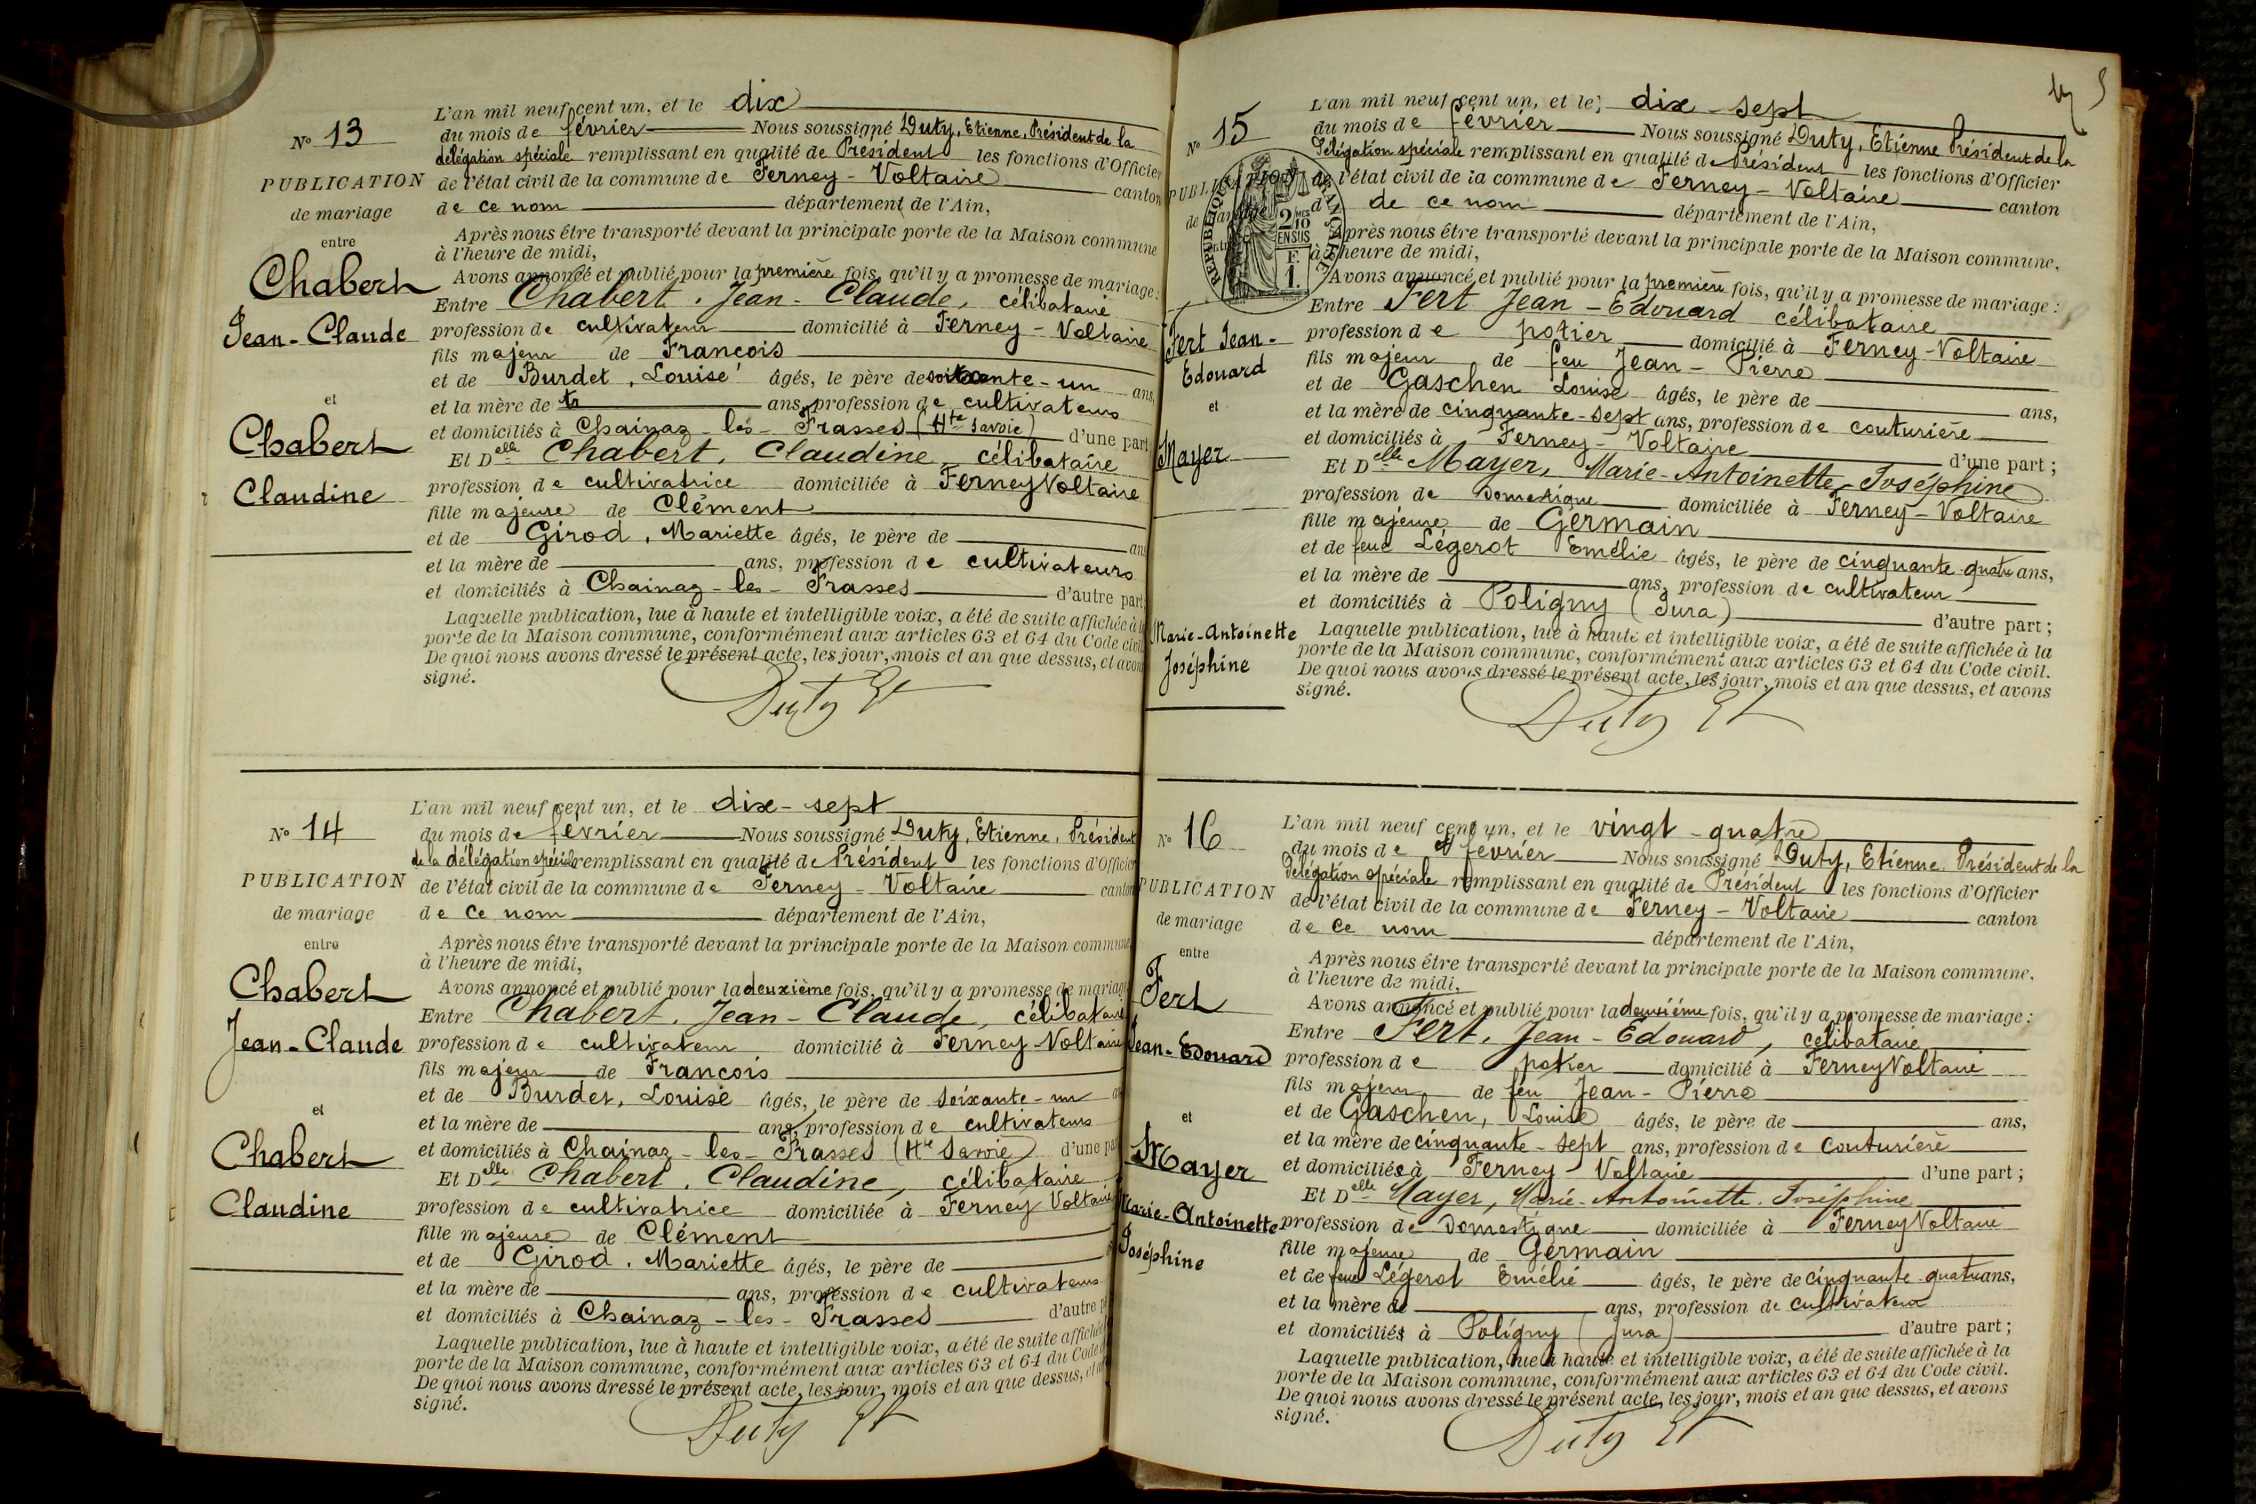 L'an mil neuf cent un, et le dix
N° 13
du mois de février Nous soussigné Duty, Etienne, Président de la
délégation spéciale remplissant en qualité de Président les fonctions d'Officier
PUBLICATION
de l'état civil de la commune de Ferney-Voltaire canton
de mariage
de ce nom département de l'Ain,
entre
Après nous être transporté devant la principale porte de la Maison commune
à l'heure de midi,
Avons annoncé et publié pour la première fois, qu'il y a promesse de mariage:
Chabert
Entre Chabert, Jean-Claude, célibataire
Jean-Claude
profession de cultivateur domicilié à Ferney-Voltaire
fils majeur de François
et de Burdet, Louise âgés, le père de soixante-un ans,
et
et la mère de ans, profession de cultivateurs
et domiciliés à Chainaz-les-Frasses (Hte Savoie) d'une part
Chabert
Et Delle Chabert, Claudine, célibataire
Claudine
profession de cultivatrice domiciliée à Ferney Voltaire
fille majeure de Clément
et de Girod, Mariette âgés, le père de ans
et la mère de ans, profession de cultivateurs
et domiciliés à Chainaz-les-Frasses d'autre part
Laquelle publication, lue à haute et intelligible voix, a été de suite affichée à la
porte de la Maison commune, conformément aux articles 63 et 64 du Code civil
De quoi nous avons dressé le présent acte, les jour, mois et an que dessus, et avons
signé.
Duty Et
L'an mil neuf cent un, et le dix-sept
N° 14
du mois de février Nous soussigné Duty, Etienne, Président
de la délégation spéciale remplissant en qualité de Président les fonctions d'Officier
PUBLICATION
de l'état civil de la commune de Ferney-Voltaire canton
de mariage
de ce nom département de l'Ain,
entre
Après nous être transporté devant la principale porte de la Maison commune,
à l'heure de midi,
Chabert
Avons annoncé et publié pour la deuxième fois, qu'il y a promesse de mariage
Entre Chabert, Jean-Claude, célibataire
Jean-Claude
profession de cultivateur domicilié à Ferney-Voltaire
fils majeur de François
et de Burdet, Louise âgés, le père de soixante-un
et
et la mère de ans, profession de cultivateurs
Chabert
et domiciliés à Chainaz-les-Frasses (Hte Savoie) d'une part
Et Delle Chabert, Claudine, célibataire
Claudine
profession de cultivatrice domiciliée à Ferney Voltaire
fille majeure de Clément
et de Girod, Mariette âgés, le père de
et la mère de ans, profession de cultivateurs
et domiciliés à Chainaz-les-Frasses d'autre
Laquelle publication, lue à haute et intelligible voix, a été de suite affichée
porte de la Maison commune, conformément aux articles 63 et 64 du Code
De quoi nous avons dressé le présent acte, les jour, mois et an que dessus, et
signé.
Duty Et
5
L'an mil neuf cent un, et le dix-sept
N° 15
du mois de février Nous soussigné Duty, Etienne Président de la
Délégation spéciale remplissant en qualité de Président les fonctions d'Officier
PUBLICATION
de l'état civil de la commune de Ferney-Voltaire canton
de mariage
de ce nom département de l'Ain,
entre
RÉPUBLIQUE FRANÇAISE
2/10 EN SUS
F. 1.
Après nous être transporté devant la principale porte de la Maison commune,
à l'heure de midi,
Avons annoncé et publié pour la première fois, qu'il y a promesse de mariage:
Entre Fert Jean-Edouard célibataire
Fert Jean-
Edouard
profession de potier domicilié à Ferney-Voltaire
fils majeur de feu Jean-Pierre
et
et de Gaschen Louise âgés, le père de ans,
et la mère de cinquante-sept ans, profession de couturière
Mayer
et domiciliés à Ferney-Voltaire d'une part;
Et Delle Mayer, Marie-Antoinette-Joséphine
profession de Domestique domiciliée à Ferney-Voltaire
fille majeure de Germain
et de feue Légerot Emélie âgés, le père de cinquante-quatre ans,
et la mère de ans, profession de cultivateur
et domiciliés à Poligny (Jura) d'autre part;
Marie-Antoinette
Joséphine
Laquelle publication, lue à haute et intelligible voix, a été de suite affichée à la
porte de la Maison commune, conformément aux articles 63 et 64 du Code civil.
De quoi nous avons dressé le présent acte, les jour, mois et an que dessus, et avons
signé.
Duty Et
L'an mil neuf cent un, et le vingt-quatre
N° 16
du mois de février Nous soussigné Duty, Etienne Président de la
Délégation spéciale remplissant en qualité de Président les fonctions d'Officier
PUBLICATION
de l'état civil de la commune de Ferney-Voltaire canton
de mariage
de ce nom département de l'Ain,
entre
Après nous être transporté devant la principale porte de la Maison commune,
à l'heure de midi,
Fert
Avons annoncé et publié pour la deuxième fois, qu'il y a promesse de mariage:
Jean-Edouard
Entre Fert, Jean-Edouard, célibataire
profession de potier domicilié à Ferney Voltaire
fils majeur de feu Jean-Pierre
et
et de Gaschen, Louise âgés, le père de ans,
et la mère de cinquante-sept ans, profession de couturière
Mayer
et domiciliés à Ferney-Voltaire d'une part;
Et Delle Mayer, Marie-Antoinette Joséphine
Marie-Antoinette
profession de Domestique domiciliée à Ferney Voltaire
Joséphine
fille majeure de Germain
et de feue Légerot Emélié âgés, le père de cinquante-quatre ans,
et la mère de ans, profession de cultivateur
et domiciliés à Poligny (Jura) d'autre part;
Laquelle publication, lue à haute et intelligible voix, a été de suite affichée à la
porte de la Maison commune, conformément aux articles 63 et 64 du Code civil.
De quoi nous avons dressé le présent acte, les jour, mois et an que dessus, et avons
signé.
Duty Et